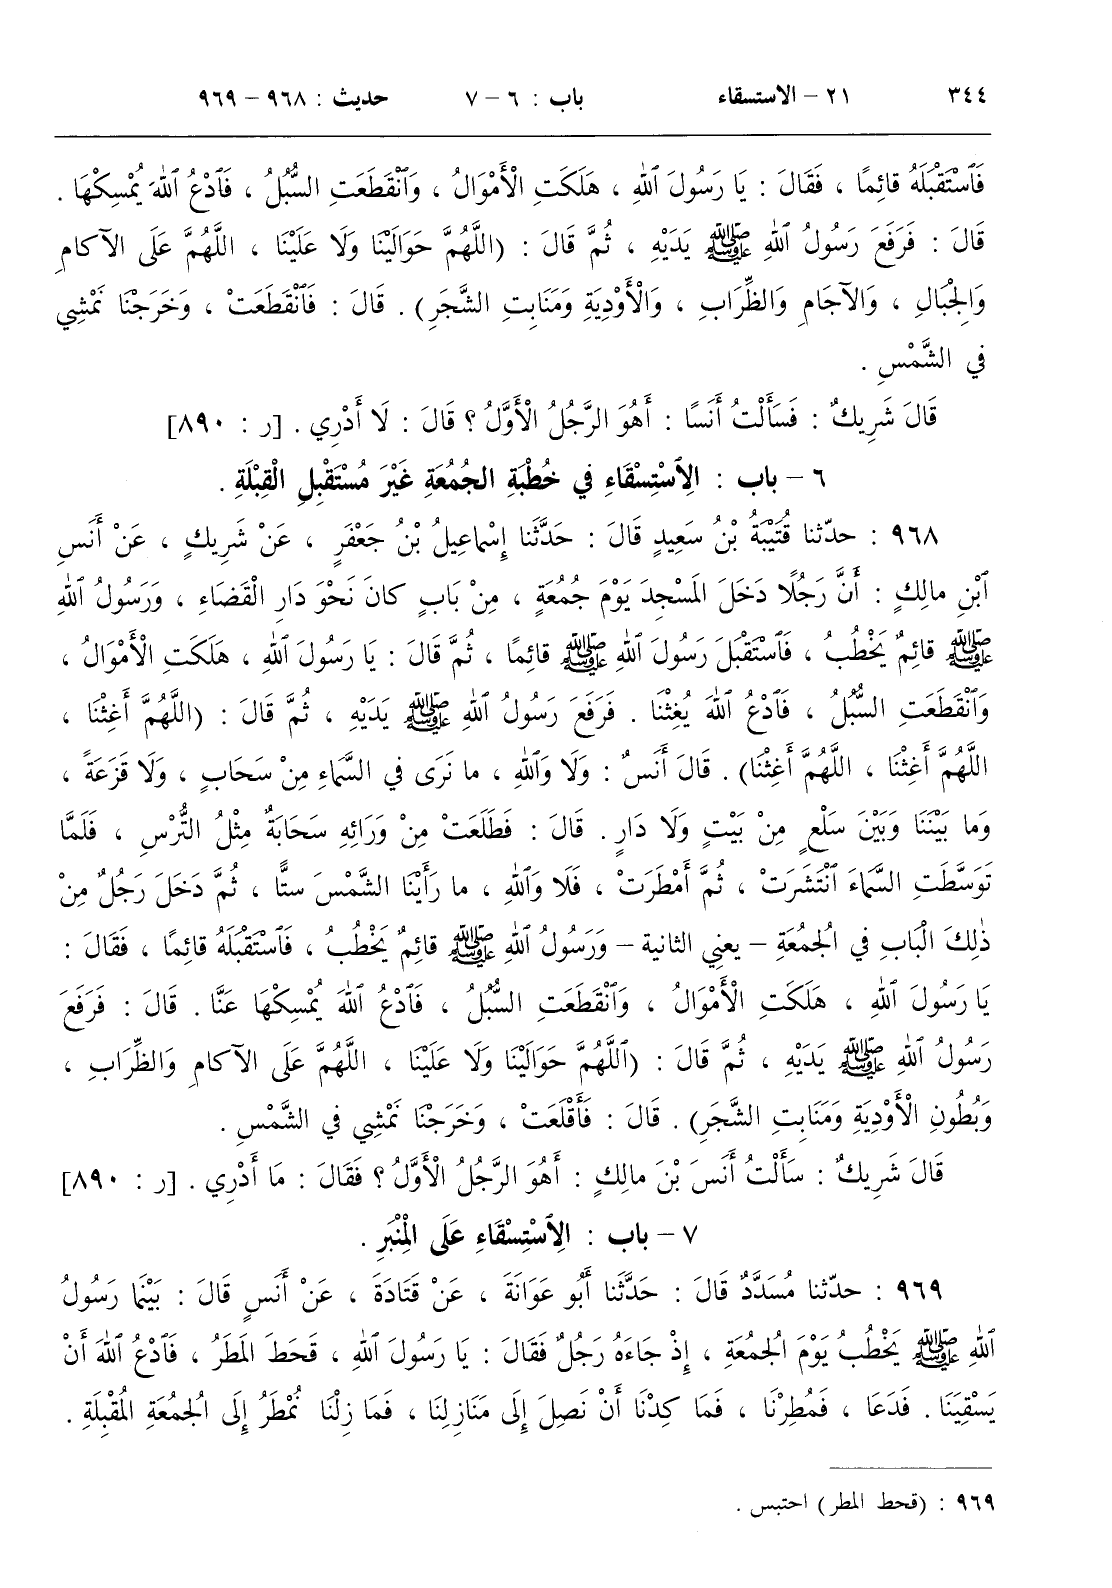 ٣٤٤ ٢١ – الاستسقاء باب : ٦ – ٧ حديث : ٩٦٨ – ٩٦٩
فَٱسْتَقْبَلَهُ قائِمًا ، فَقَالَ : يَا رَسُولَ ٱللهِ ، هَلَكَتِ الْأَمْوَالُ ، وَٱنْقَطَعَتِ السُّبُلُ ، فَٱدْعُ ٱللهَ يُمْسِكْهَا .
قَالَ : فَرَفَعَ رَسُولُ ٱللهِ ﷺ يَدَيْهِ ، ثُمَّ قَالَ : (اللَّهُمَّ حَوَالَيْنَا وَلَا عَلَيْنَا ، اللَّهُمَّ عَلَى الآكامِ
وَالْجِبَالِ ، وَالآجَامِ وَالظِّرَابِ ، وَالْأَوْدِيَةِ وَمَنَابِتِ الشَّجَرِ) . قَالَ : فَٱنْقَطَعَتْ ، وَخَرَجْنَا نَمْشِي
في الشَّمْسِ .
قَالَ شَرِيكٌ : فَسَأَلْتُ أَنَسًا : أَهُوَ الرَّجُلُ الْأَوَّلُ ؟ قَالَ : لَا أَدْرِي . [ر : ٨٩٠]
٦ – باب : الِٱسْتِسْقَاءِ في خُطْبَةِ الجُمُعَةِ غَيْرَ مُسْتَقْبِلِ الْقِبْلَةِ .
٩٦٨ : حدّثنا قُتَيْبَةُ بْنُ سَعِيدٍ قَالَ : حَدَّثَنَا إِسْماعِيلُ بْنُ جَعْفَرٍ ، عَنْ شَرِيكٍ ، عَنْ أَنَسِ
ٱبْنِ مالِكٍ : أَنَّ رَجُلًا دَخَلَ المَسْجِدَ يَوْمَ جُمُعَةٍ ، مِنْ بَابٍ كانَ نَحْوَ دَارِ الْقَضَاءِ ، وَرَسُولُ ٱللهِ
ﷺ قائِمٌ يَخْطُبُ ، فَٱسْتَقْبَلَ رَسُولَ ٱللهِ ﷺ قائِمًا ، ثُمَّ قَالَ : يَا رَسُولَ ٱللهِ ، هَلَكَتِ الْأَمْوَالُ ،
وَٱنْقَطَعَتِ السُّبُلُ ، فَٱدْعُ ٱللهَ يُغِثْنَا . فَرَفَعَ رَسُولُ ٱللهِ ﷺ يَدَيْهِ ، ثُمَّ قَالَ : (اللَّهُمَّ أَغِثْنَا ،
اللَّهُمَّ أَغِثْنَا ، اللَّهُمَّ أَغِثْنَا) . قَالَ أَنَسٌ : وَلَا وَٱللهِ ، ما نَرَى في السَّمَاءِ مِنْ سَحَابٍ ، وَلَا قَزَعَةً ،
وَما بَيْنَنَا وَبَيْنَ سَلْعٍ مِنْ بَيْتٍ وَلَا دَارٍ . قَالَ : فَطَلَعَتْ مِنْ وَرَائِهِ سَحَابَةٌ مِثْلُ التُّرْسِ ، فَلَمَّا
تَوَسَّطَتِ السَّمَاءَ ٱنْتَشَرَتْ ، ثُمَّ أَمْطَرَتْ ، فَلَا وَٱللهِ ، ما رَأَيْنَا الشَّمْسَ ستًّا ، ثُمَّ دَخَلَ رَجُلٌ مِنْ
ذٰلِكَ الْبَابِ في الْجُمُعَةِ – يعني الثانية – وَرَسُولُ ٱللهِ ﷺ قائِمٌ يَخْطُبُ ، فَٱسْتَقْبَلَهُ قائِمًا ، فَقَالَ :
يَا رَسُولَ ٱللهِ ، هَلَكَتِ الْأَمْوَالُ ، وَٱنْقَطَعَتِ السُّبُلُ ، فَٱدْعُ ٱللهَ يُمْسِكْهَا عَنَّا . قَالَ : فَرَفَعَ
رَسُولُ ٱللهِ ﷺ يَدَيْهِ ، ثُمَّ قَالَ : (ٱللَّهُمَّ حَوَالَيْنَا وَلَا عَلَيْنَا ، اللَّهُمَّ عَلَى الآكامِ وَالظِّرَابِ ،
وَبُطُونِ الْأَوْدِيَةِ وَمَنَابِتِ الشَّجَرِ) . قَالَ : فَأَقْلَعَتْ ، وَخَرَجْنَا نَمْشِي في الشَّمْسِ .
قَالَ شَرِيكٌ : سَأَلْتُ أَنَسَ بْنَ مالِكٍ : أَهُوَ الرَّجُلُ الْأَوَّلُ ؟ فَقَالَ : مَا أَدْرِي . [ر : ٨٩٠]
٧ – باب : الِٱسْتِسْقَاءِ عَلَى الْمِنْبَرِ .
٩٦٩ : حدّثنا مُسَدَّدٌ قَالَ : حَدَّثَنَا أَبُو عَوَانَةَ ، عَنْ قَتَادَةَ ، عَنْ أَنَسٍ قَالَ : بَيْنَمَا رَسُولُ
ٱللهِ ﷺ يَخْطُبُ يَوْمَ الْجُمُعَةِ ، إِذْ جَاءَهُ رَجُلٌ فَقَالَ : يَا رَسُولَ ٱللهِ ، قَحَطَ المَطَرُ ، فَٱدْعُ ٱللهَ أَنْ
يَسْقِيَنَا . فَدَعَا ، فَمُطِرْنَا ، فَمَا كِدْنَا أَنْ نَصِلَ إِلَى مَنَازِلِنَا ، فَمَا زِلْنَا نُمْطَرُ إِلَى الْجُمُعَةِ المُقْبِلَةِ .
٩٦٩ : (قحط المطر) احتبس .